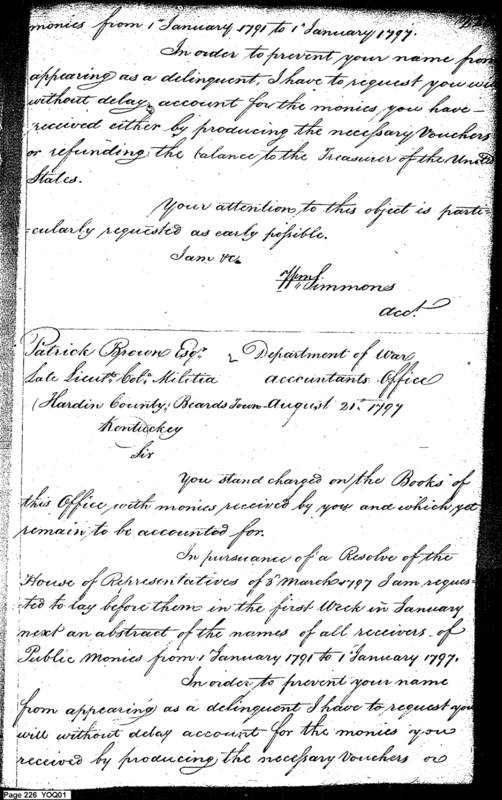 monies from 1st January 1791 to 1st January 1797.
In order to prevent your name from
appearing as a delinquent, I have to request you will
without delay account for the monies, you have
received either by producing the necessary Vouchers
or refunding the balance to the Treasurer of the United
States.
Your attention to this object is parti-
=cularly requested as early possible.
I am &c
Wm Simmons
acct
Patrick Brown Esqr Department of War
Late Lieutt Colo Militia accountants Office
(Hardin County) Beards Town August 21st 1797
Kentuckey
Sir
You stand charged on the Books of
this Office, with monies received by you and which yet
remain to be accounted for.
In pursuance of a Resolve of the
House of Representatives of 3d March 1797 I am reques-
ted to lay before them in the first Week in January
next an abstract of the names of all receivers of
Public Monies from 1st January 1791 to 1st January 1797.
In order to prevent your name
from appearing as a delinquent I have to request you
will without delay account for the monies you
received by producing the necessary Vouchers or
Page 226 YOQ01